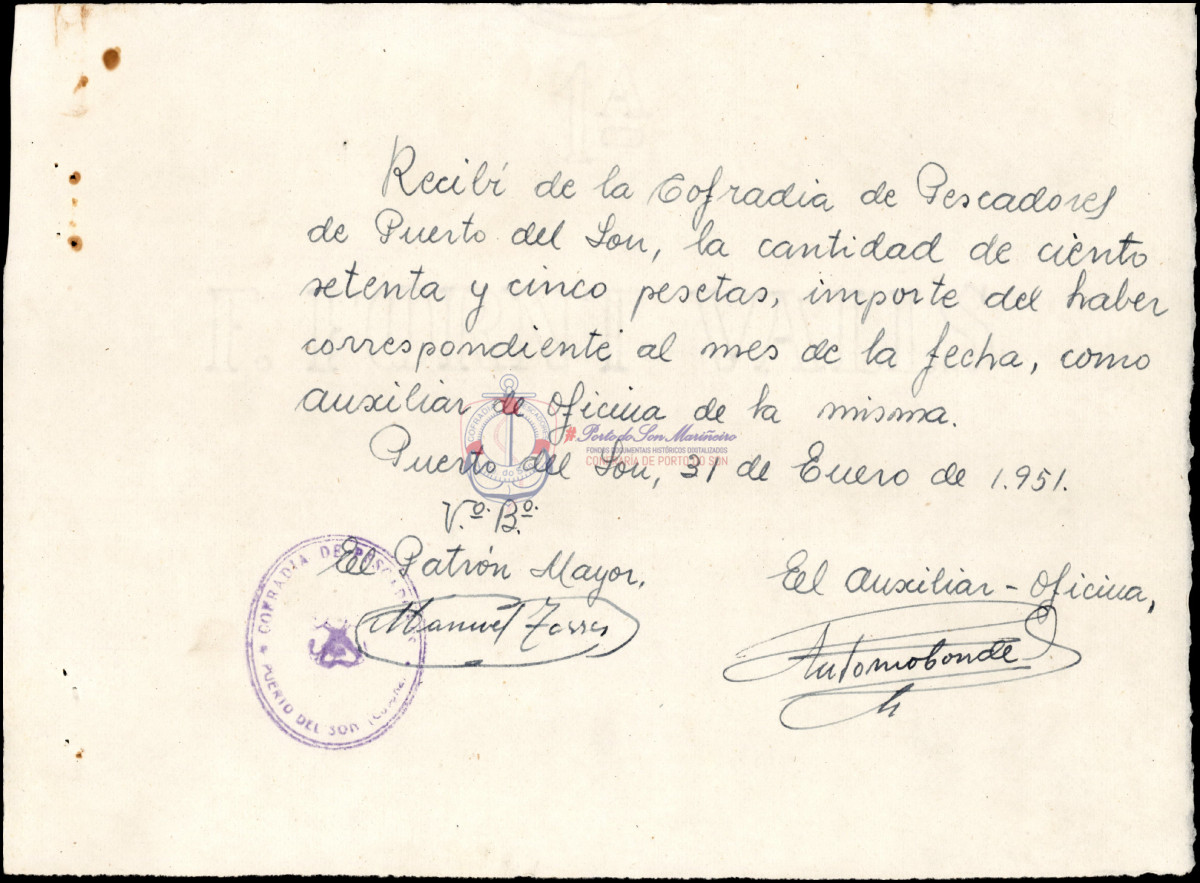 Recibí de la Cofradia de Pescadores
de Puerto del Son, la cantidad de ciento
setenta y cinco pesetas, importe del haber
correspondiente al mes de la fecha, como
auxiliar de Oficina de la misma.
#PortodoSon Mariñeiro
FONDOS DOCUMENTAIS HISTÓRICOS DIXITALIZADOS
CONFRARÍA DE PORTO DO SON
Puerto del Son, 31 de Enero de 1.951.
V.º B.º
El Patrón Mayor,
El Auxiliar - Oficina,
Manuel Torres
COFRADIA DE PESCADORES
PUERTO DEL SON